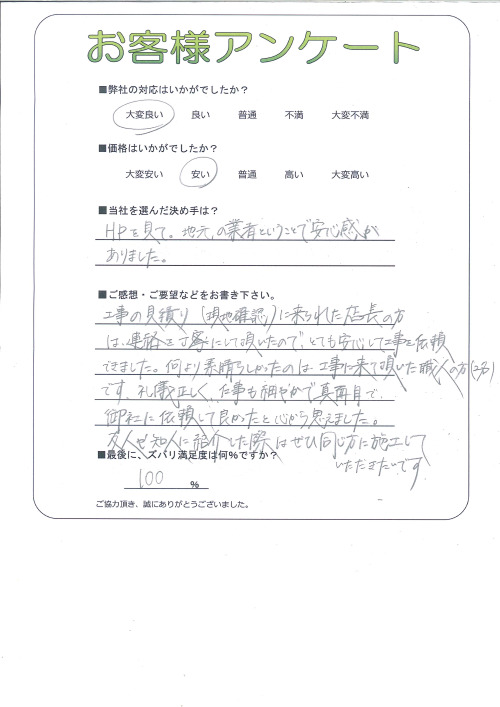 お客様アンケート
■弊社の対応はいかがでしたか？
大変良い 良い 普通 不満 大変不満
■価格はいかがでしたか？
大変安い 安い 普通 高い 大変高い
■当社を選んだ決め手は？
HPを見て。地元の業者ということで安心感が
ありました。
■ご感想・ご要望などをお書き下さい。
工事の見積り(現地確認)に来られた店長の方
は、連絡を丁寧にして頂いたので、とても安心して工事を依頼
できました。何より素晴らしかったのは、工事に来て頂いた職人の方(2名)
です。礼儀正しく、仕事も細やかで真面目で、
御社に依頼して良かったと心から思えました。
友人や知人に紹介した際はぜひ同じ方に施工して
いただきたいです
■最後に、ズバリ満足度は何%ですか？
100 %
ご協力頂き、誠にありがとうございました。